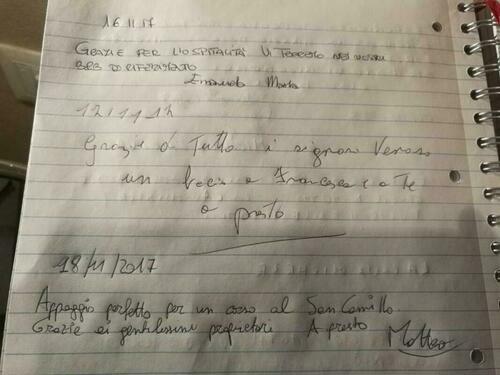 16.11.17
GRAZIE PER L'OSPITALITÀ VI TERREMO NEI NOSTRI
B&B DI RIFERIMENTO
Emanuela Marta
12/11/17
Grazie di Tutto i signori
un bacio a Francesca e a Te
a presto
18/11/2017
Appoggio perfetto per un corso al San Camillo.
Grazie ai gentilissimi proprietari A presto
Matteo